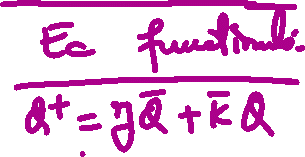 Ec functional.
Q⁺ = J Q̅ + K̅ Q